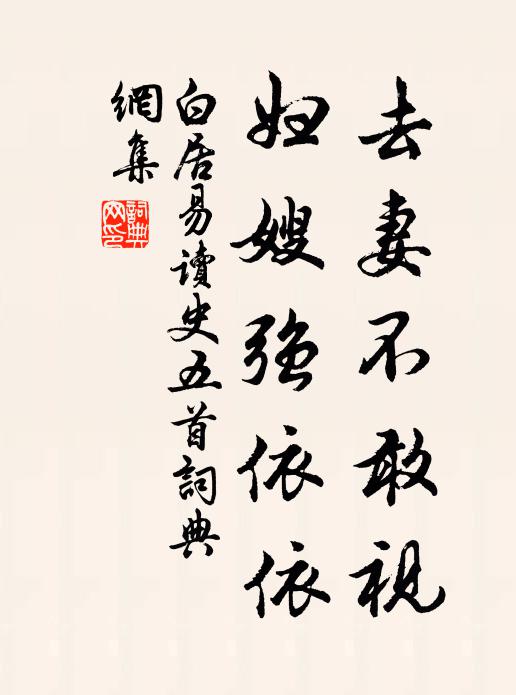 去妻不敢視
妇嫂強依依
白居易讀史五首詞典
網集
詞典
网印